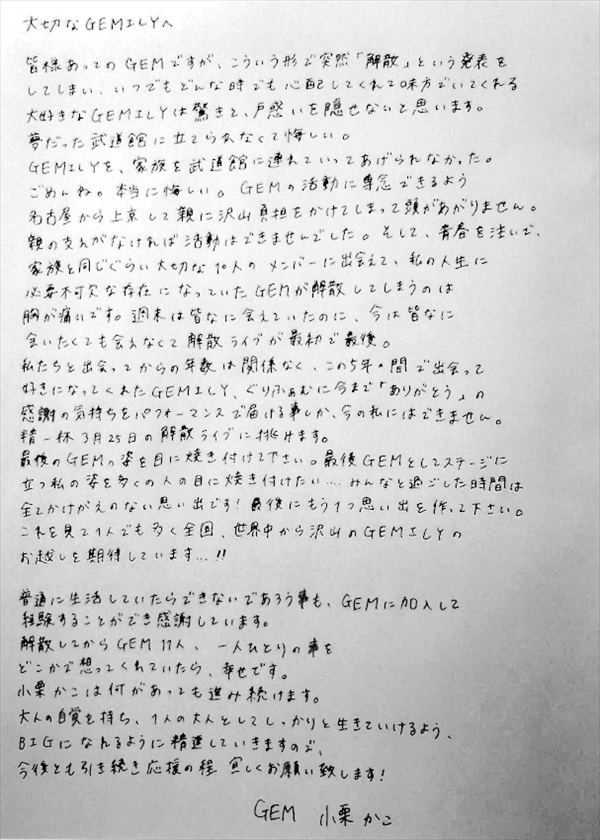 大切なGEMILYへ
皆様あってのGEMですが、こういう形で突然「解散」という発表を
してしまい、いつでもどんな時でも心配してくれて味方でいてくれる
大好きなGEMILYは驚きと、戸惑いを隠せないと思います。
夢だった武道館に立てられなくて悔しい。
GEMILYを、家族を武道館に連れていってあげられなかった。
ごめんね。本当に悔しい。GEMの活動に専念できるよう
名古屋から上京して親に沢山負担をかけてしまって頭があがりません。
親の支えがなければ活動はできませんでした。そして、青春を注いで、
家族と同じぐらい大切な10人のメンバーに出会えて、私の人生に
必要不可欠な存在になっていたGEMが解散してしまうのは
胸が痛いです。週末は皆なに会えていたのに、今は皆なに
会いたくても会えなくて解散ライブが最初で最後。
私たちと出会ってからの年数は関係なく、この5年の間で出会って
好きになってくれたGEMILY、ぐりふぁむに今まで「ありがとう」の
感謝の気持ちをパフォーマンスで届ける事しか、今の私にはできません。
精一杯3月25日の解散ライブに挑みます。
最後のGEMの姿を目に焼き付けて下さい。最後GEMとしてステージに
立つ私の姿を多くの人の目に焼き付けたい…. みんなと過ごした時間は
全てかけがえのない思い出です! 最後にもう1つ思い出を作って下さい。
これを見て1人でも多く全国、世界中から沢山のGEMILYの
お越しを期待しています...!!
普通に生活していたらできないであろう事も、GEMに加入して
経験することができ感謝しています。
解散してからGEM 11人、一人ひとりの事を
どこかで想ってくれていたら、幸せです。
小栗かこは何があっても進み続けます。
大人の自覚を持ち、1人の大人としてしっかりと生きていけるよう、
BIGになれるように精進していきますので、
今後とも引き続き応援の程 宜しくお願い致します!
GEM 小栗かこ